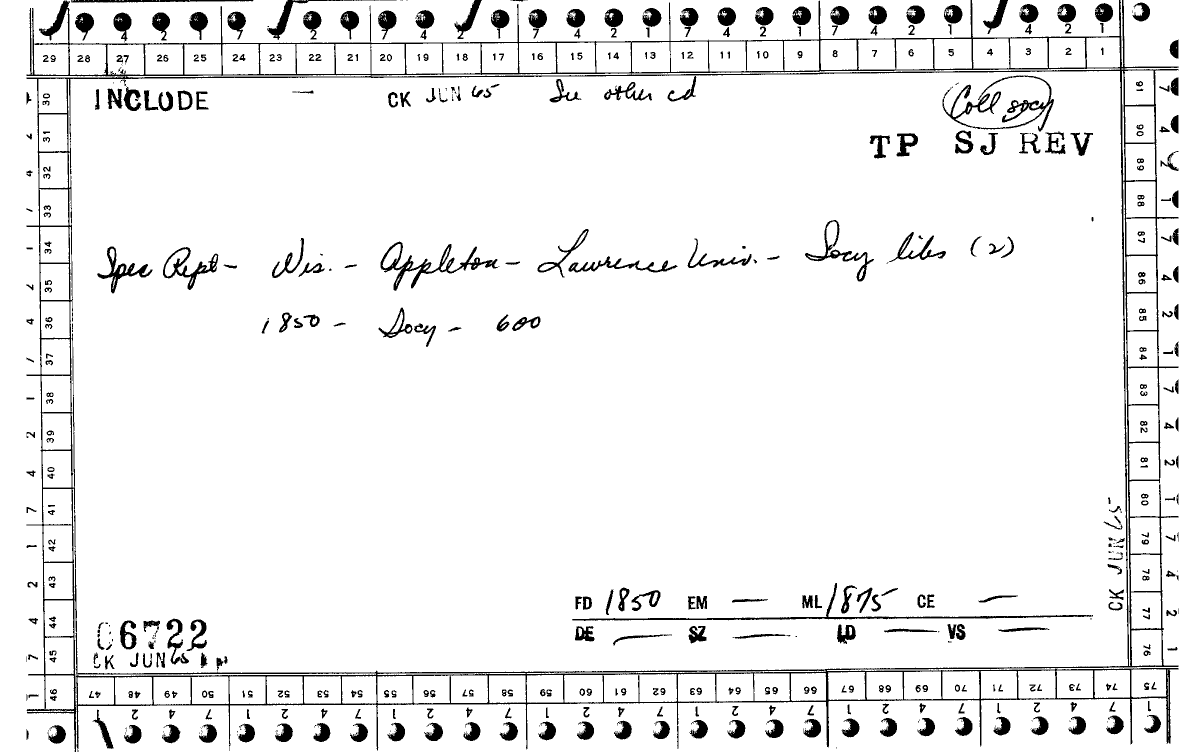 7 4 2 1 7 2 1 7 4 2 1 7 4 2 1 7 4 2 1 7 4 2 1 4 2 1
29 28 27 26 25 24 23 22 21 20 19 18 17 16 15 14 13 12 11 10 9 8 7 6 5 4 3 2 1
INCLUDE — CK JUN 65 See other cd Coll socy
TP SJ REV
Spec Rept – Wis. – Appleton – Lawrence Univ. – Socy libs (2)
1850 – Socy – 600
FD 1850 EM — ML 1875 CE —
DE — SZ — LD — VS —
06722
CK JUN 65
CK JUN 65
30 31 32 33 34 35 36 37 38 39 40 41 42 43 44 45 46
91 90 89 88 87 86 85 84 83 82 81 80 79 78 77 76 75
47 48 49 50 51 52 53 54 55 56 57 58 59 60 61 62 63 64 65 66 67 68 69 70 71 72 73 74
1 2 4 7 1 2 4 7 1 2 4 7 1 2 4 7 1 2 4 7 1 2 4 7 1 2 4 7